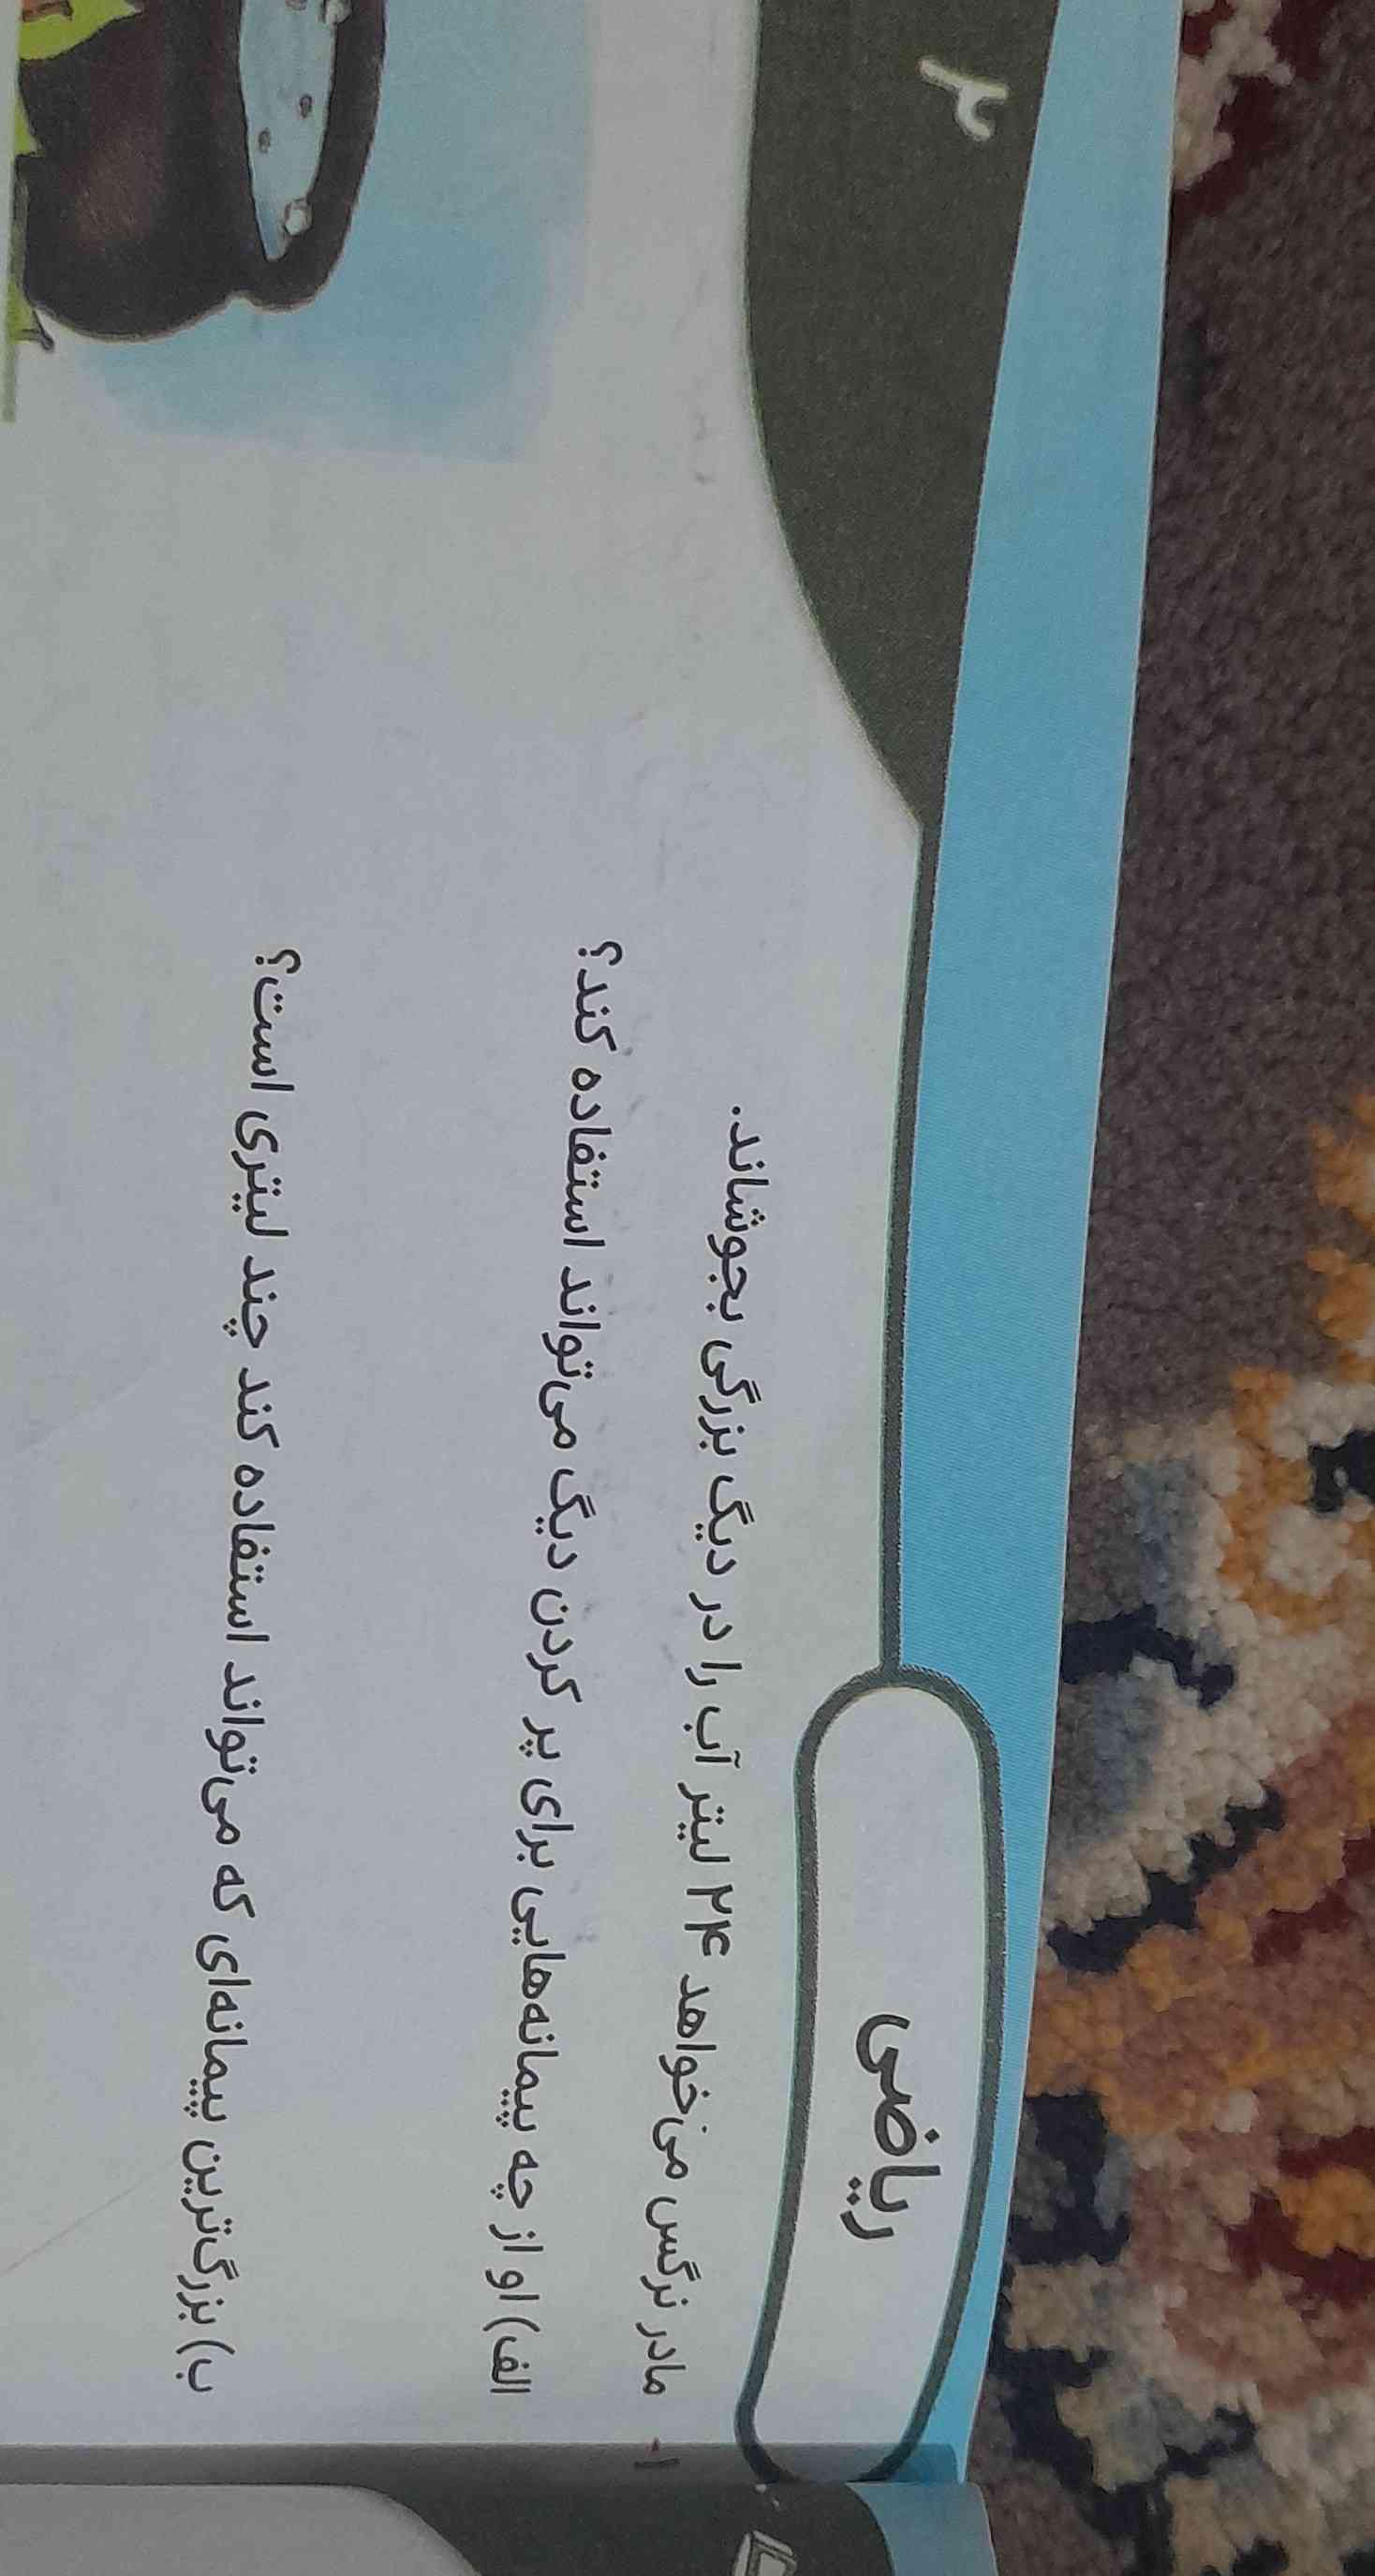 ۲
ریاضی
۱- مادر نرگس می‌خواهد ۲۴ لیتر آب را در دیگ بزرگی بجوشاند.
الف) او از چه پیمانه‌هایی برای پر کردن دیگ می‌تواند استفاده کند؟
ب) بزرگ‌ترین پیمانه‌ای که می‌تواند استفاده کند چند لیتری است؟